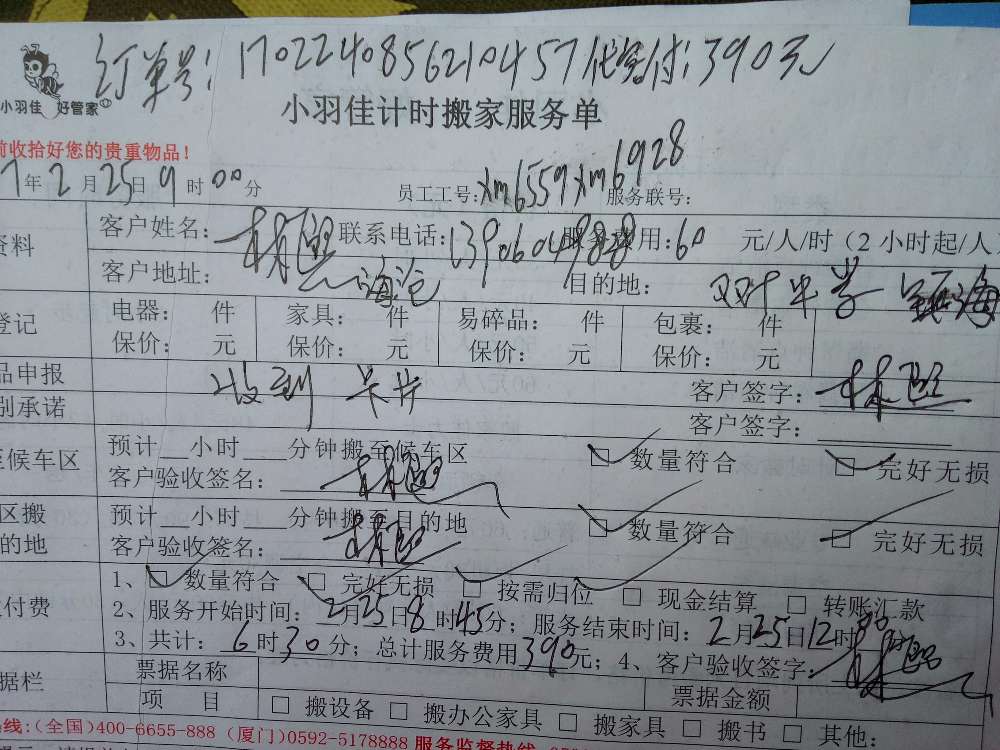 订单号: 1702240856210457 代客付: 390元
小羽佳 好管家
小羽佳计时搬家服务单
前收拾好您的贵重物品!
7年2月25日9时00分 员工工号:xm6559 xm6928 服务联号:
资料 客户姓名: 林 联系电话: 服务费用:60 元/人/时(2小时起/人
客户地址: 海沧 目的地: 双十中学
登记 电器: 件 家具: 件 易碎品: 件 包裹: 件
保价: 元 保价: 元 保价: 元 保价: 元
品申报 收到 卡片 客户签字: 林
别承诺 客户签字:
至候车区 预计__小时___分钟搬至候车区 □ 数量符合 □ 完好无损
客户验收签名: 林
区搬 预计__小时___分钟搬至目的地 □ 数量符合 □ 完好无损
的地 客户验收签名: 林
付费 1、□ 数量符合 □ 完好无损 □ 按需归位 □ 现金结算 □ 转账汇款
2、服务开始时间: 2月25日8时45分; 服务结束时间: 2月25日12时
3、共计: 6时30分; 总计服务费用390元; 4、客户验收签字: 林
据栏 票据名称 票据金额
项 目 □ 搬设备 □ 搬办公家具 □ 搬家具 □ 搬书 □ 其他:
热线:(全国)400-6655-888 (厦门)0592-5178888 服务监督热线